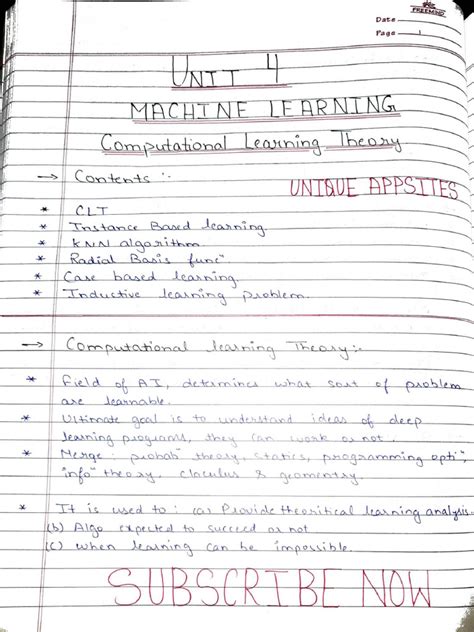 FREEMIND
Date
Page 1
UNIT 4
MACHINE LEARNING
Computational Learning Theory
→ Contents :-
UNIQUE APPSITES
* CLT
* Instance Based learning.
* KNN algorithm.
* Radial Basis funcⁿ
* Case based learning.
* Inductive learning problem.
→ Computational learning Theory:-
* Field of AI, determines what sort of problem
are learnable.
* Ultimate goal is to understand ideas of deep
learning programs, they can work or not.
* Merge : probabⁿ theory, statics, programming optiⁿ,
infoⁿ theory, claculus & geomentry.
* It is used to : (a) Provide theoritical learning analysis.
(b) Algo expected to succeed or not
(c) when learning can be impossible.
SUBSCRIBE NOW